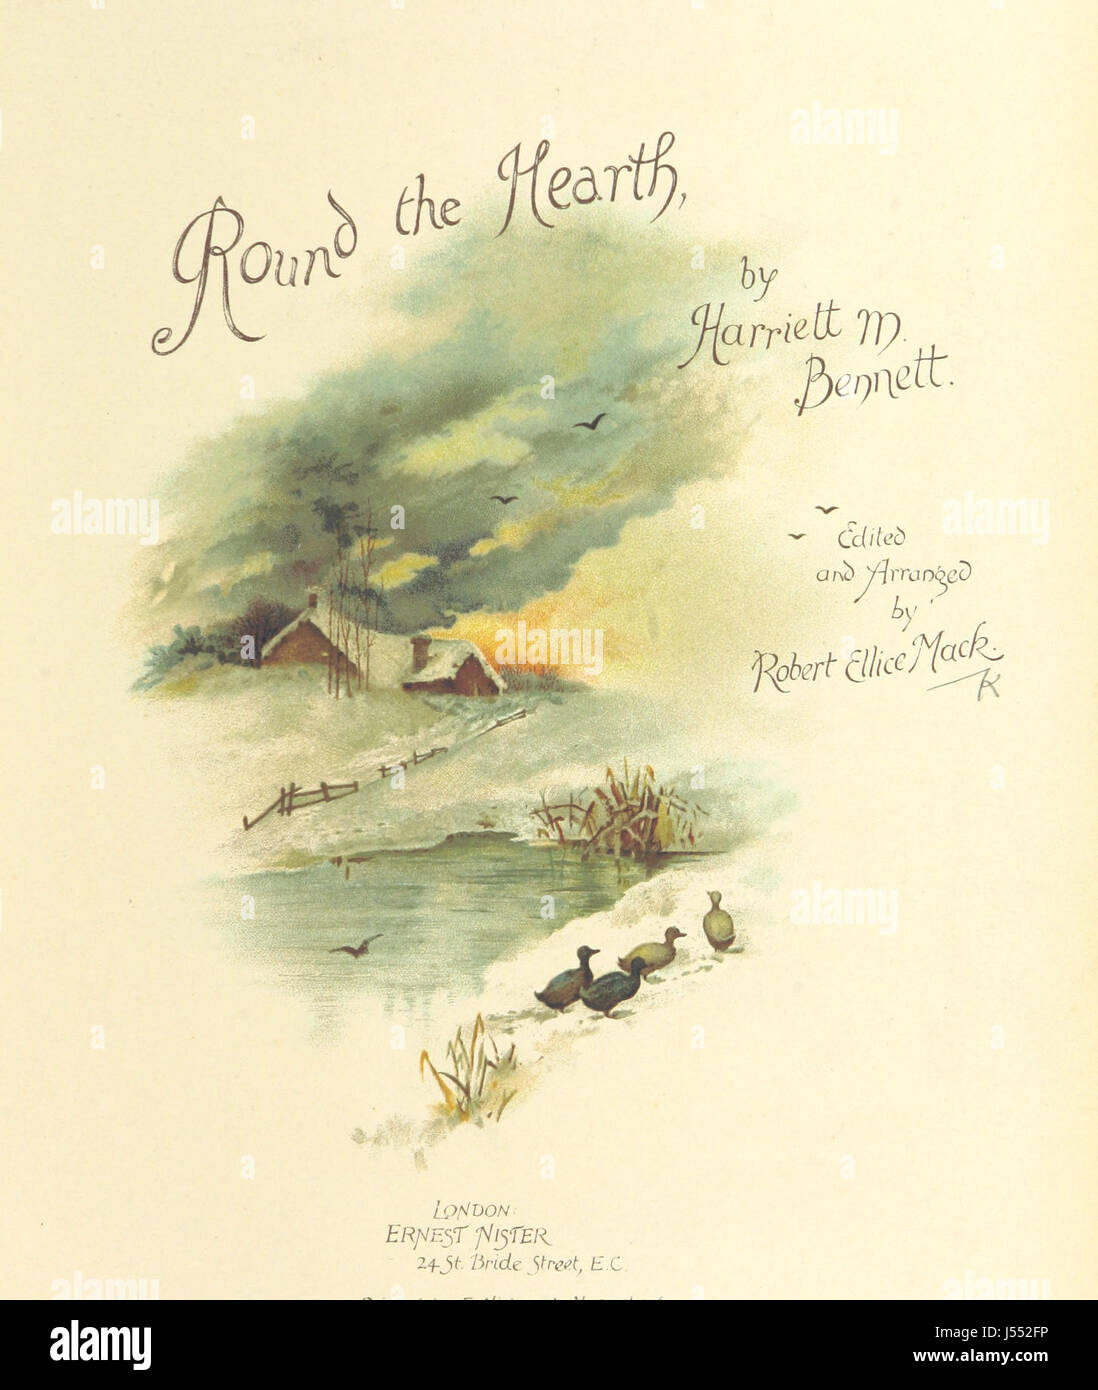 Round the Hearth,
by
Harriett M.
Bennett.
Edited
and Arranged
by
Robert Ellice Mack.
LONDON:
ERNEST NISTER
24 St. Bride Street, E.C.
alamy
Image ID: J552FP
www.alamy.com